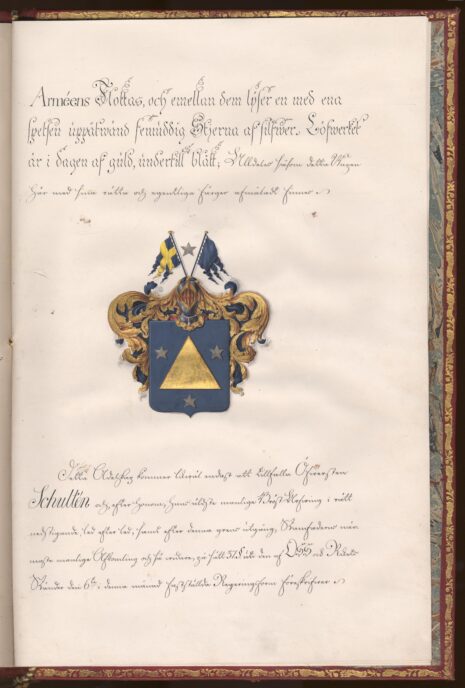 Arméens Flottas, och emellan dem lyser en med ena
spetsen uppåtwänd femuddig Stjerna af silfwer. Löfwerket
är i dagen af guld, undertill blått; Alldeles såsom detta Wapen
här med sina rätta och egentliga färger afmåladt finnes
Detta Adelskap kommer likwäl endast att tillfalla Öfwersten
Schultén och efter honom, hans äldste manlige Bröst Arfwinge i rätt
nedstigande led efter led, samt efter denna grens utgång, Stamfadrens när-
maste manlige Afkomling och så widare, på sätt 37 § uti den af och Riksens
Ständer den 6te i denna månad fastställda Regeringsform föreskrifwer